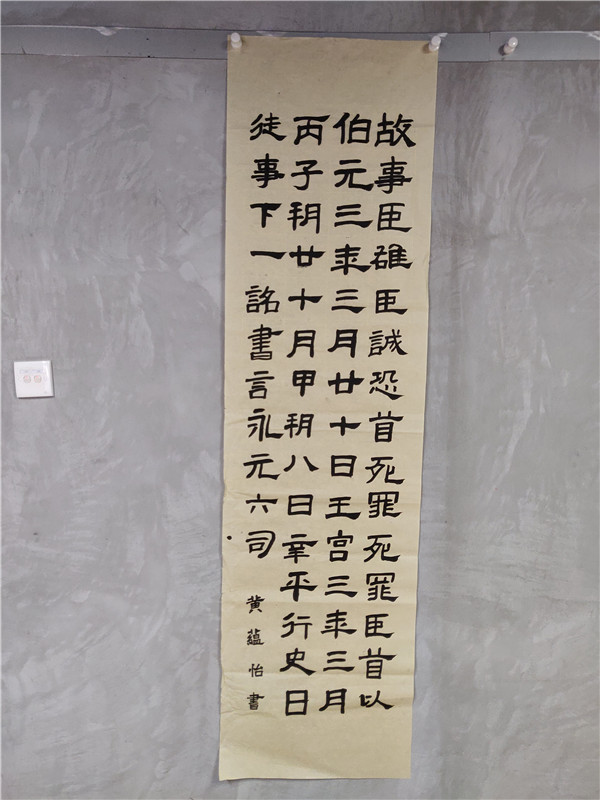 故事臣雄臣誠恐首死罪死罪臣首以
伯元三年三月廿十日王宮三年三月
丙子朔廿十月甲朔八日幸平行史日
徒事下一詔書言永元六司
黄蘊怡書